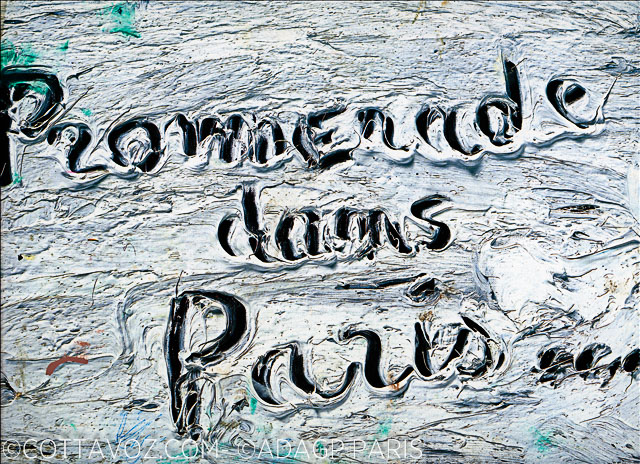 Promenade
dans
Paris ....
©COTTAVOZ.COM- ©ADAGP PARIS